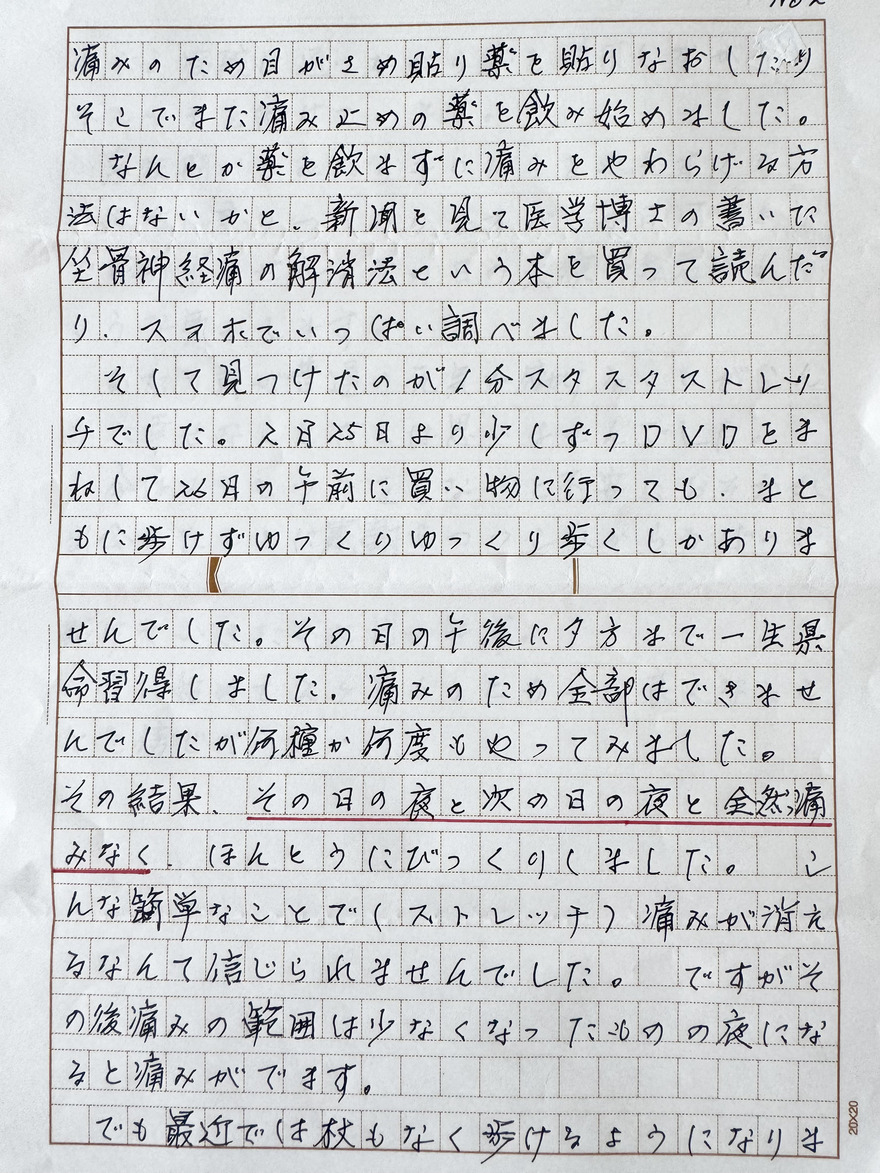 No2
痛みのため目がさめ貼り薬を貼りなおしたり
そこでまた痛み止めの薬を飲み始めました。
なんとか薬を飲まずに痛みをやわらげる方
法はないかと、新聞を見て医学博士の書いた
坐骨神経痛の解消法という本を買って読んだ
り、スマホでいっぱい調べました。
そして見つけたのが1分スタスタストレッ
チでした。2月25日より少しずつDVDをま
ねして26日の午前に買い物に行っても、まと
もに歩けずゆっくりゆっくり歩くしかありま
せんでした。その日の午後に夕方まで一生県
命習得しました。痛みのため全部はできませ
んでしたが何種か何度もやってみました。
その結果、その日の夜と次の日の夜と全然痛
みなく、ほんとうにびっくりしました。 こ
んな簡単なことで(ストレッチ)痛みが消え
るなんて信じられませんでした。 ですがそ
の後痛みの範囲は少なくなったものの夜にな
ると痛みがでます。
でも最近では杖もなく歩けるようになりま
20×20